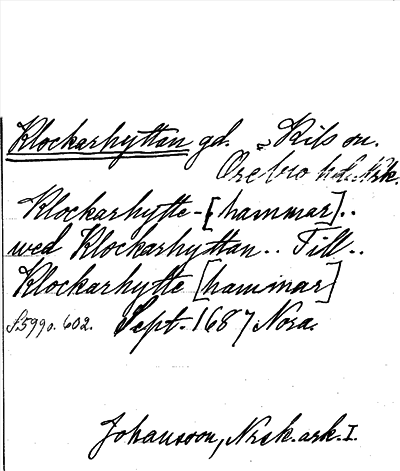 Klockarhyttan gd. Kils sn.
Örebro hd. Nrk.
Klockarhytte-[hammar]..
wed Klockarhyttan.. Till..
Klockarhytte [hammar]
s.599o.602. Sept. 1687 Nora.
Johansson, Nrsk. ark. I.